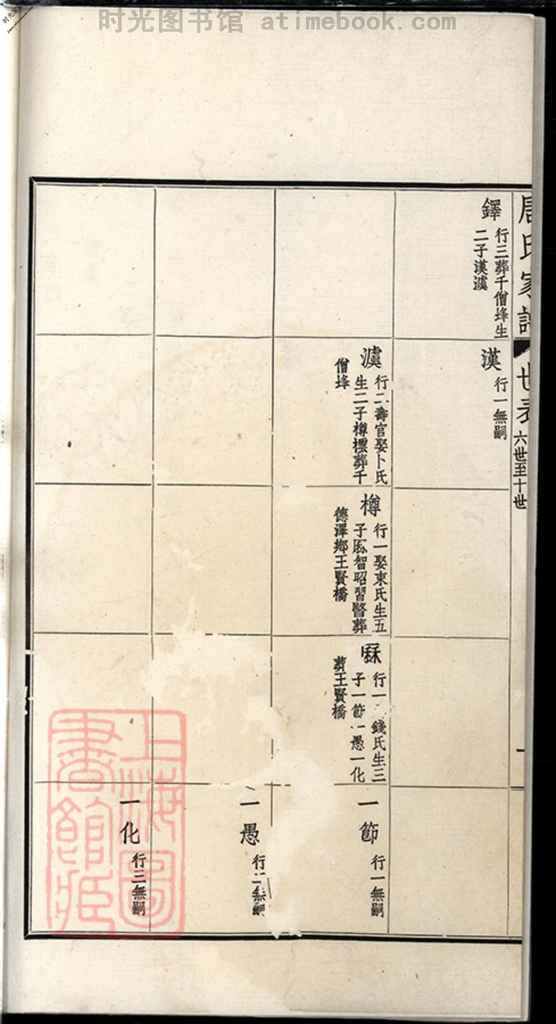 时光图书馆 atimebook.com
氏家譜
世表
六世至十世
一
鐸
行三葬千僧烽生
二子漢
漢
行一無嗣
行二壽官娶卜氏
生二子樽葬千
僧烽
樽
行一娶束氏生五
子智昭習葬
德澤鄉王賢橋
行一錢氏生三
子一節一愚一化
葬王賢橋
一節
行一無嗣
一愚
行二無嗣
一化
行三無嗣
上海圖
書館藏